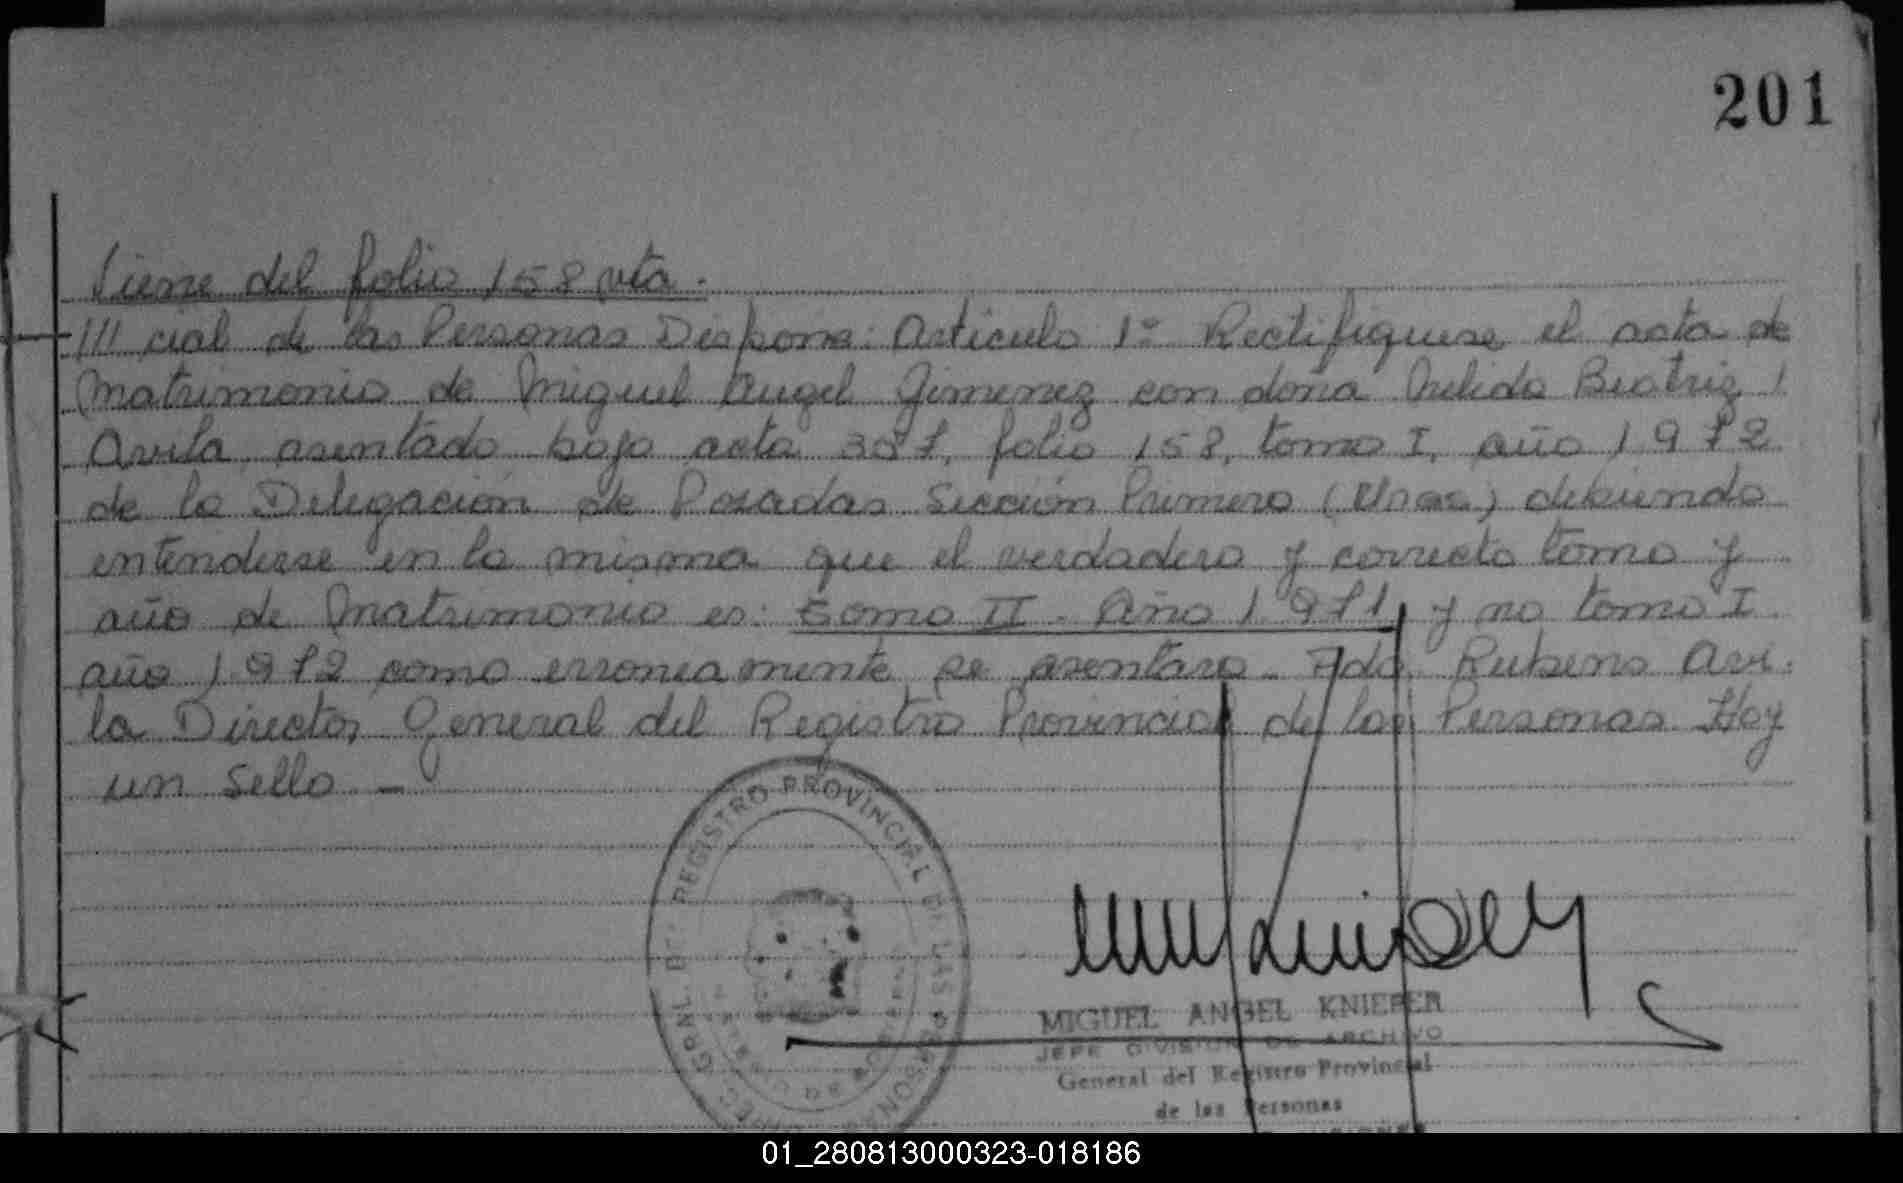 201
Viene del folio 158 vta.
/// cial de las Personas Dispone: Artículo 1º Rectifiquese el acta de
Matrimonio de Miguel Angel Gimenez con doña Nelida Beatriz
Avila, asentado bajo acta folio 158, tomo I, año 1972
de la Delegación de Posadas Sección Primera debiendo
entenderse en la misma que el verdadero y correcto tomo y
año de Matrimonio es: tomo II - Año 1971, y no tomo I
año 1972 como erroneamente se asentara - Fdo. Rubens Avi-
la Director General del Registro Provincial de las Personas. Hay
un sello -
REGISTRO PROVINCIAL DE LAS PERSONAS
GRAL. DEL
MIGUEL ANGEL KNIEPER
JEFE DIVISION DE ARCHIVO
General del Registro Provincial
de las Personas
01_280813000323-018186